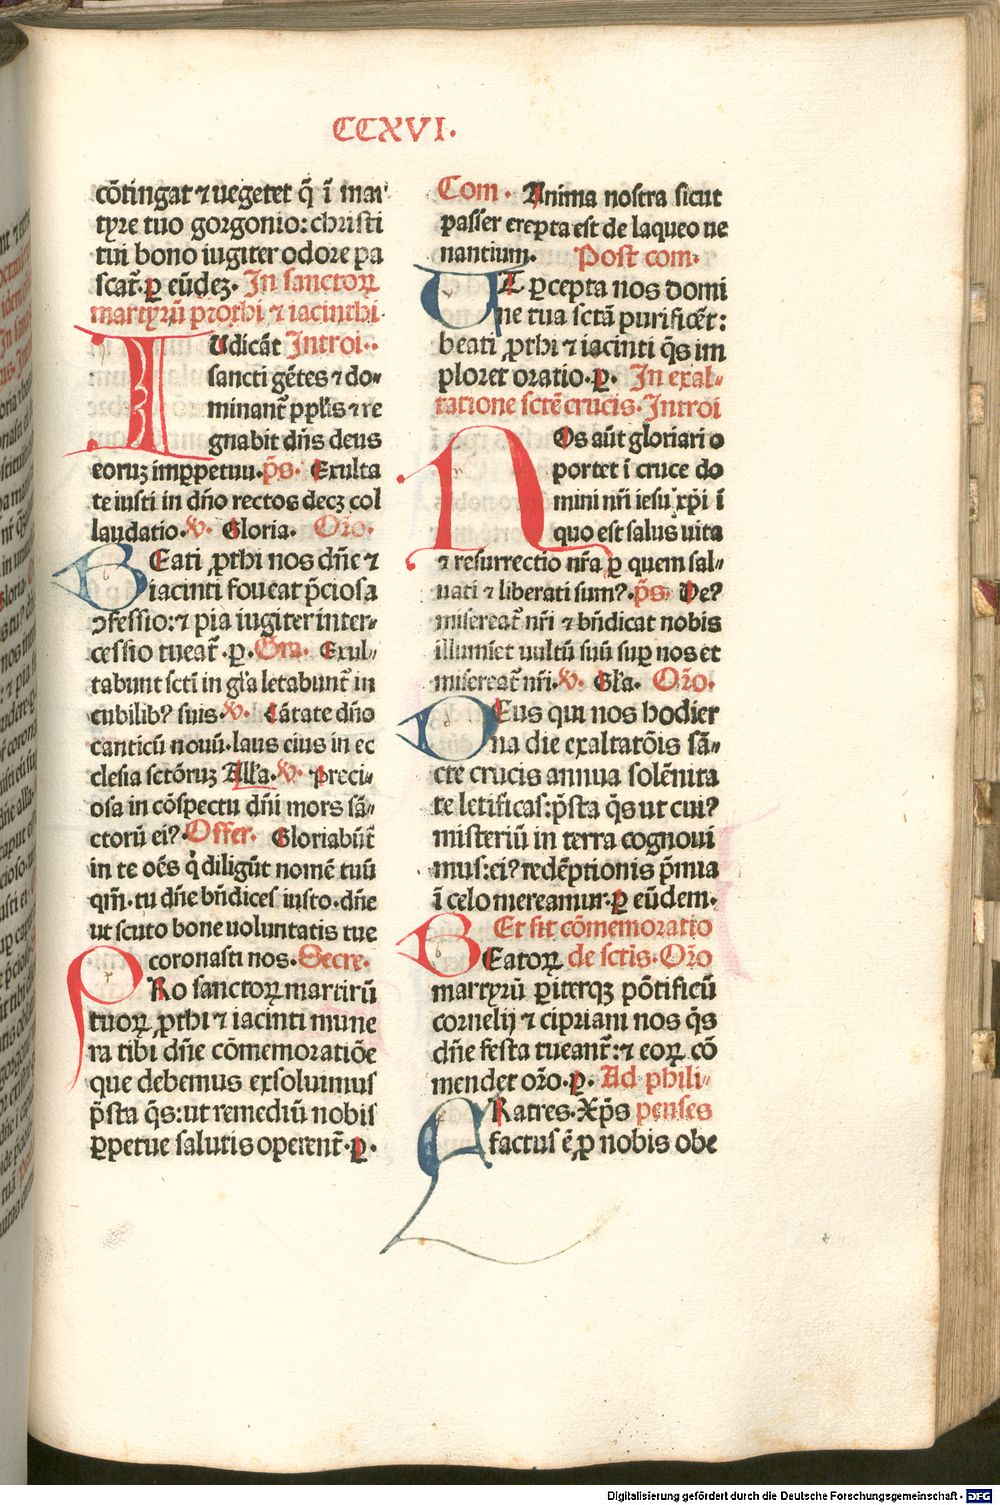 CCXVI.
cōtingat ⁊ uegetet q̄ ī mar
tyre tuo gorgonio: christi
tui bono iugiter odore pa
scat᷑. ꝑ eūdeꝫ. In sanctoꝝ
martyrū prothi ⁊ iacinthi.
IUdicāt Introi..
sancti gētes ⁊ do-
minant᷑ pplis ⁊ re
gnabit dn̄s deus
eoruꝫ imꝑpetuu. p̄s. Exulta
te iusti in dn̄o rectos decꝫ col
laudatio. v. Gloria. Oro.
BEati ꝓthi nos dn̄e ⁊
iacinti foueat p̄ciosa
ↄfessio: ⁊ pia iugiter inter-
cessio tueat᷑. ꝑ. Gra. Exul-
tabunt scti in gl̄a letabunt᷑ in
cubilibꝰ suis. v. Cātate dn̄o
canticū nouū. laus eius in ec
clesia sctōruꝫ All'a. v. Preci-
osa in cōspectu dn̄i mors sā-
ctorū eiꝰ. Offer. Gloriabūt᷑
in te oēs q̇ diligūt nomē tuū
qm̄. tu dn̄e bn̄dices iusto. dn̄e
ut scuto bone uoluntatis tue
coronasti nos. Secre.
PRo sanctoꝝ martirū
tuoꝝ ꝓthi ⁊ iacinti mune
ra tibi dn̄e cōmemoratiōe
que debemus exsoluimus
p̄sta q̄s: ut remediū nobis
ꝑpetue salutis operent᷑. ꝑ.
Com. Anima nostra sicut
passer erepta est de laqueo ue
nantium. Post com.
UT ꝑcepta nos domi
ne tua sctā purificēt:
beati ꝓthi ⁊ iacinti q̄s im
ploret oratio. ꝑ. In exal-
tatione scte crucis. Introi
NOs aūt gloriari o
portet ī cruce do
mini nr̄i iesu xp̄i ī
quo est salus uita
⁊ resurrectio nr̄a ꝑ quem sal-
uati ⁊ liberati sumꝰ. p̄s. Deꝰ
misereat᷑ nr̄i ⁊ bn̄dicat nobis
illumīet uultū suū suꝑ nos et
misereat᷑ nr̄i. v. Gl̄a. Oro.
DEus qui nos hodier
na die exaltatōis sā-
cte crucis annua solēnita
te letificas: p̄sta q̄s ut cuiꝰ
misteriū in terra cognoui
mus: eiꝰ redēptionis p̄mia
ī celo mereamur. ꝑ eūdem.
Et fit cōmemoratio
BEatoꝝ de sctis. Oro
martyrū ꝑiterqꝫ pōtificū
cornelij ⁊ cipriani nos q̄s
dn̄e festa tueant᷑: ⁊ eoꝝ cō
mendet oro. ꝑ. Ad phili-
FRatres. Xp̄s penses
factus ē ꝓ nobis obe
Digitalisierung gefördert durch die Deutsche Forschungsgemeinschaft - DFG